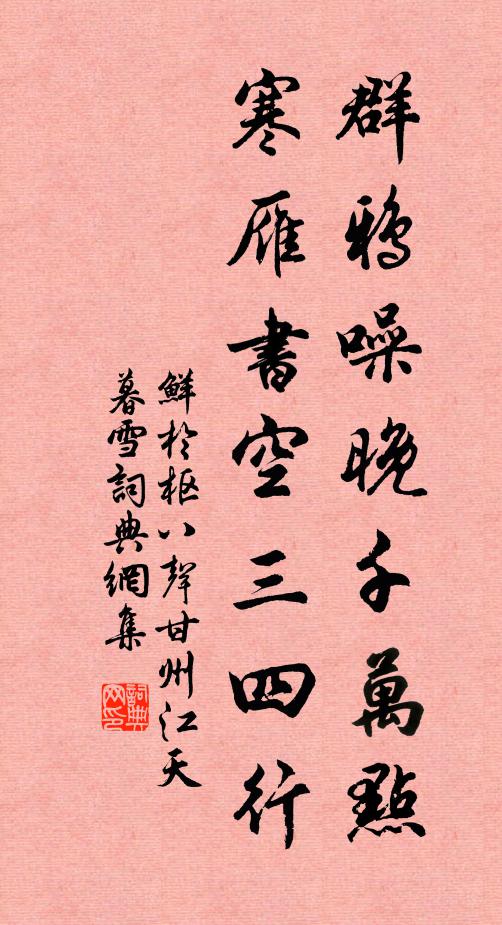 群鴉噪晚千萬點
寒雁書空三四行
鮮於樞八聲甘州江天
暮雪詞典網集
詞典
网印